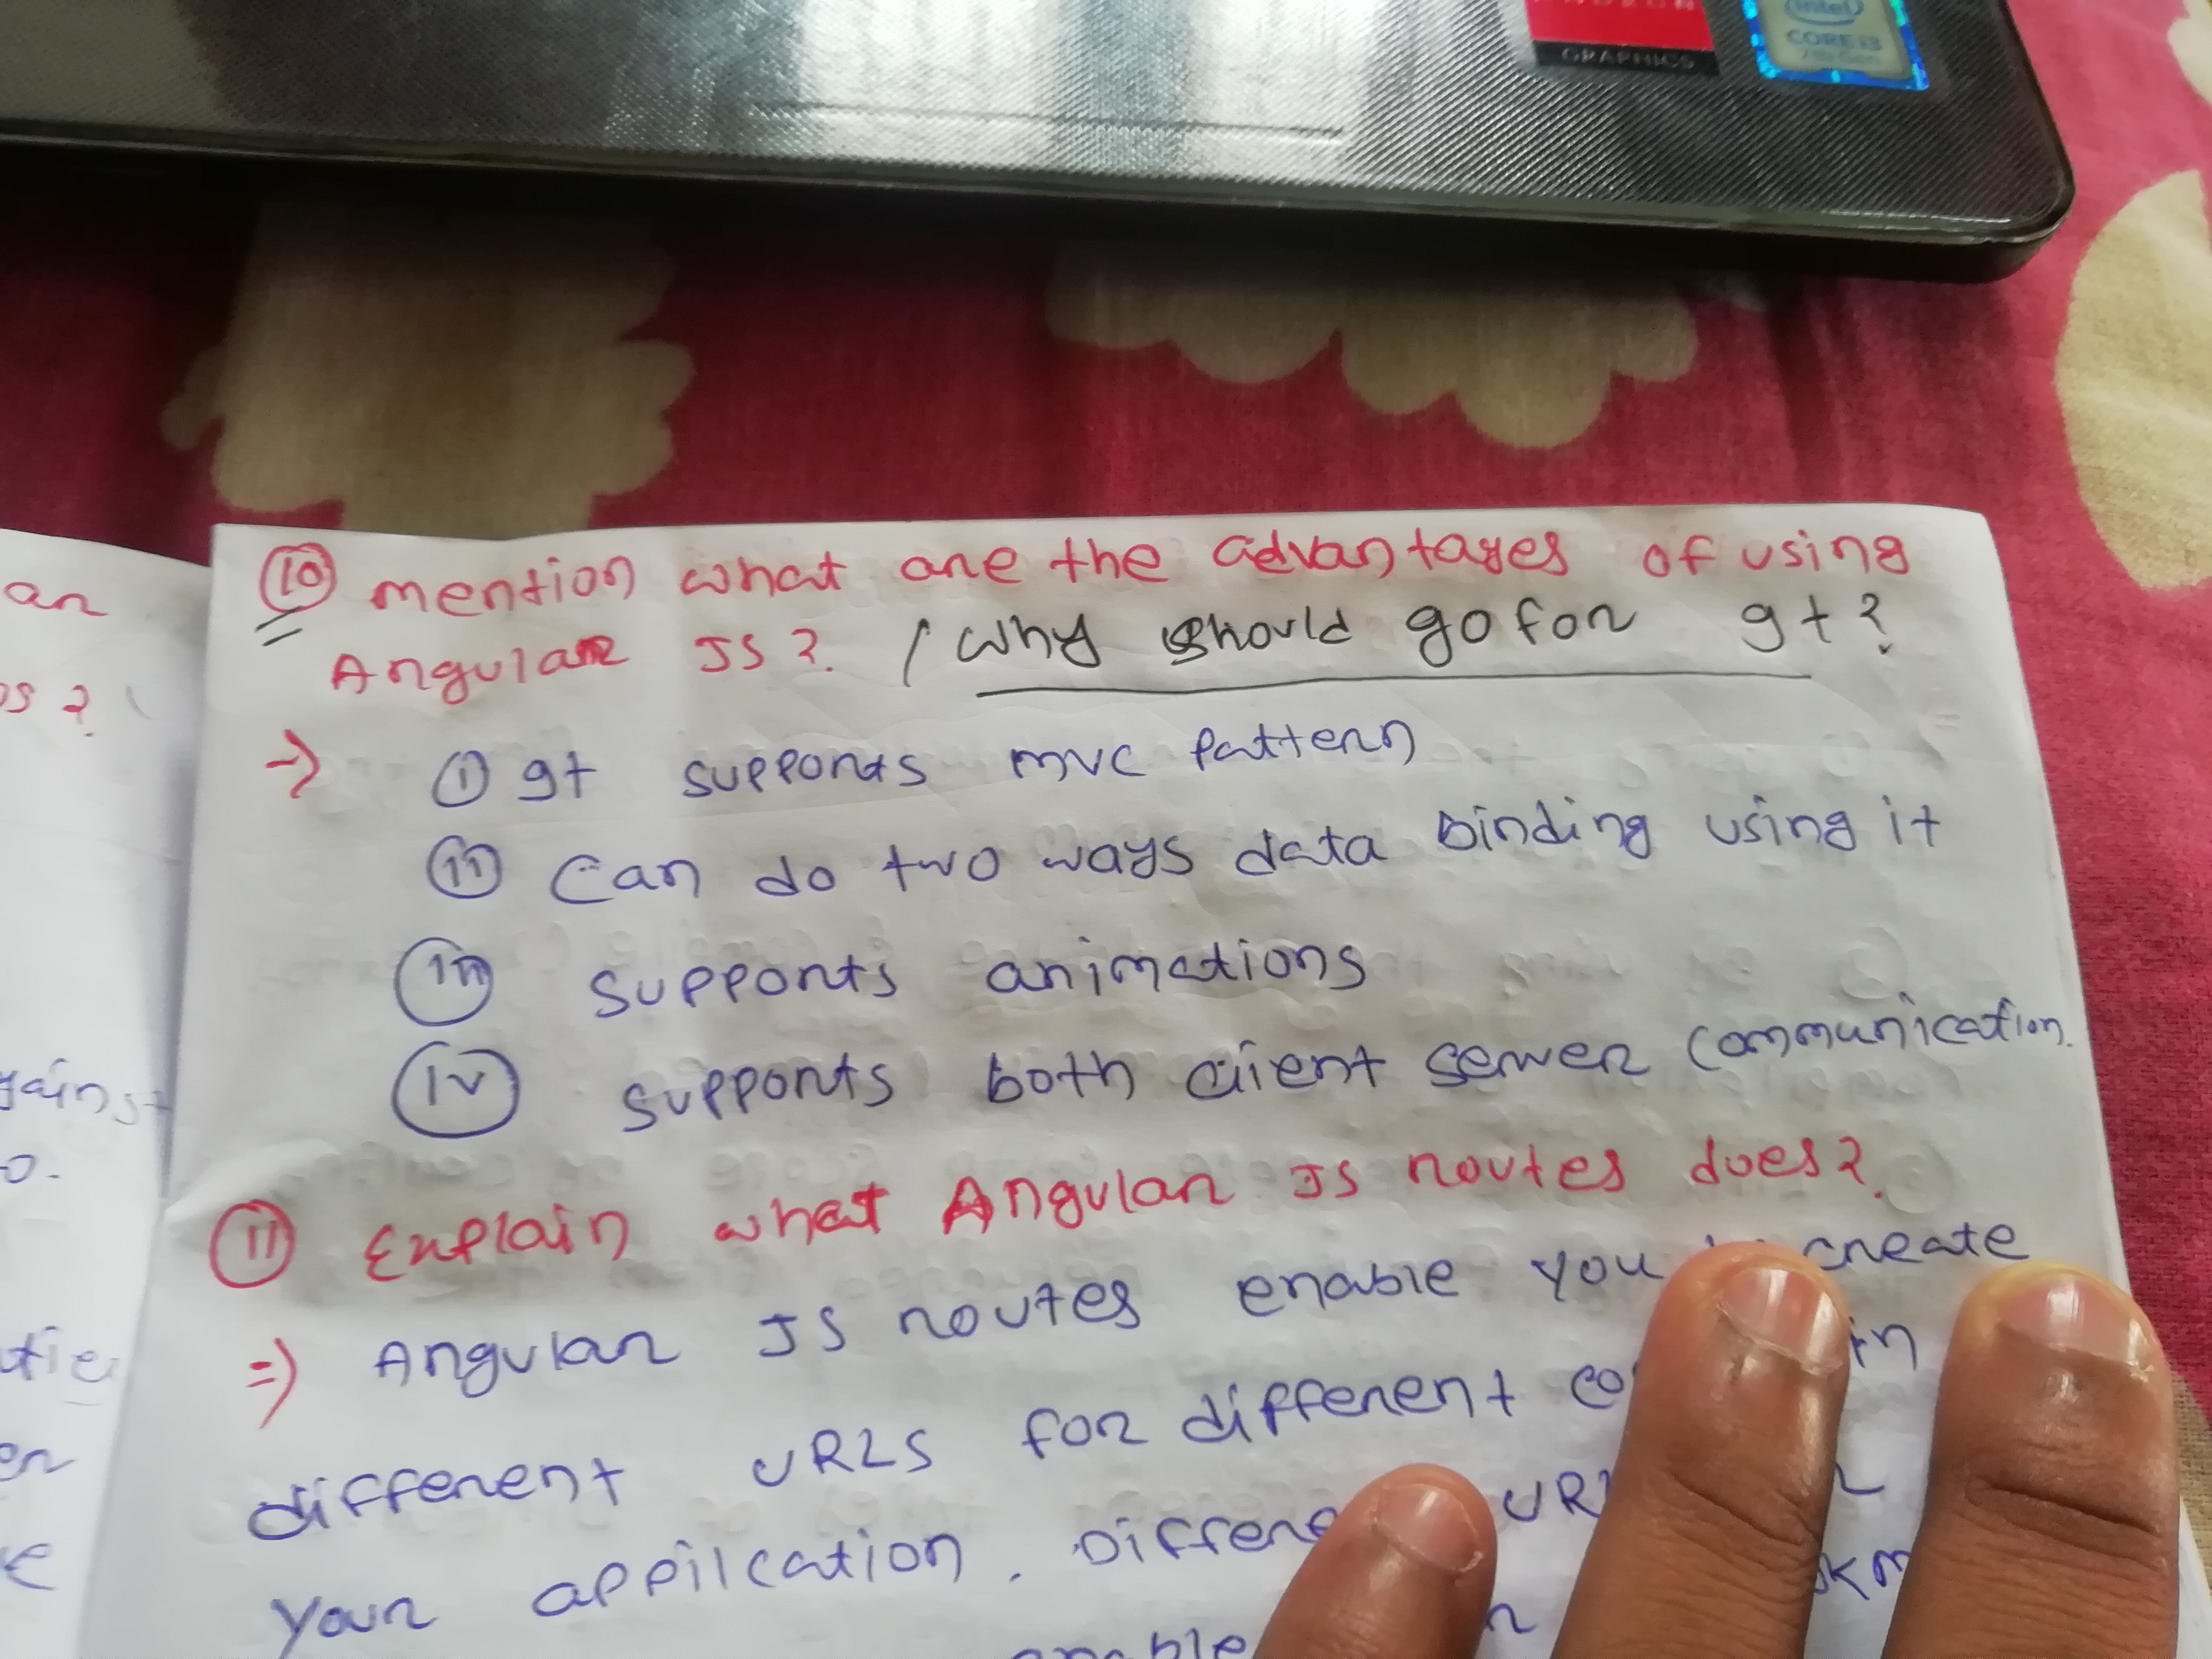 GRAPHICS
intel
CORE i3
an
os ?
gains+
o.
en
10 mention what are the advantages of using
Angular JS ? / Why should go for It ?
-> i It supports mvc pattern
ii Can do two ways data binding using it
iii supports animations
iv supports both client server communication.
11 Explain what Angular JS routes does ?
=> Angular JS routes enable you create
different URLS for different in
your appilcation. Differe UR
enable